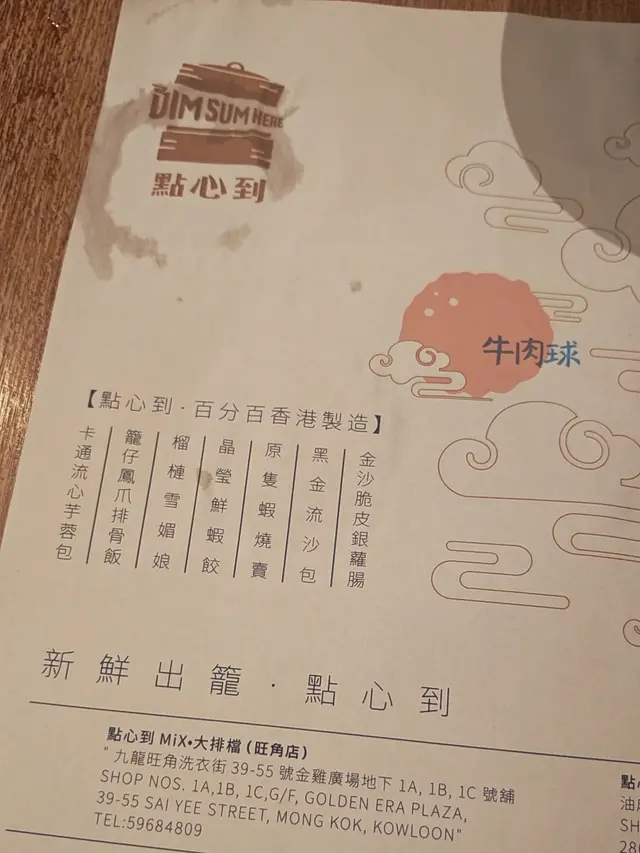 DIM SUM HERE
點心到
牛肉球
【點心到·百分百香港製造】
金沙脆皮銀蘿腸
黑金流沙包
原隻蝦燒賣
晶瑩鮮蝦餃
榴槤雪媚娘
籠仔鳳爪排骨飯
卡通流心芋蓉包
新鮮出籠·點心到
點心到 MiX•大排檔 (旺角店)
" 九龍旺角洗衣街 39-55 號金雞廣場地下 1A, 1B, 1C 號舖
SHOP NOS. 1A,1B, 1C,G/F, GOLDEN ERA PLAZA,
39-55 SAI YEE STREET, MONG KOK, KOWLOON"
TEL:59684809
點
油
SH
28